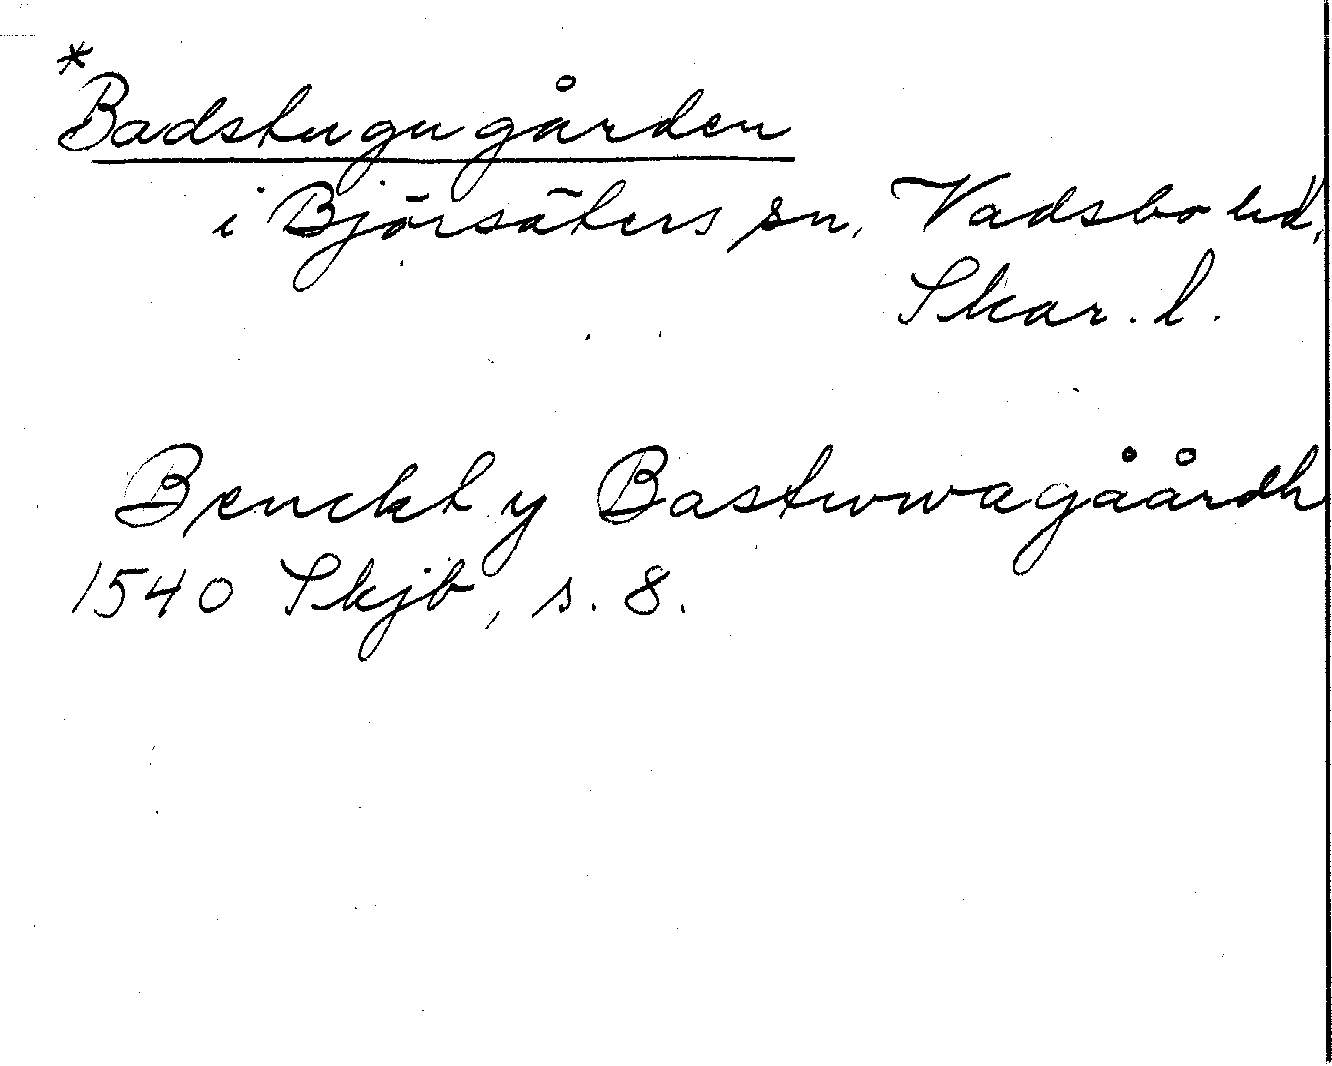 *Badstugugården
i Björsäters sn, Vadsbo hd,
Skar. l.
Benckt y Bastwwagåårdh
1540 Skjb, s. 8.